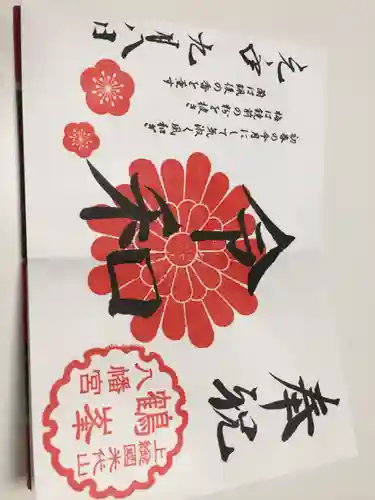 奉祝
上総國米代山
鶴峯
八幡宮
令和
初春の令月にして気淑く風和ぎ
梅は鏡前の粉を披き
蘭は珮後の香を薫す
元年九月八日